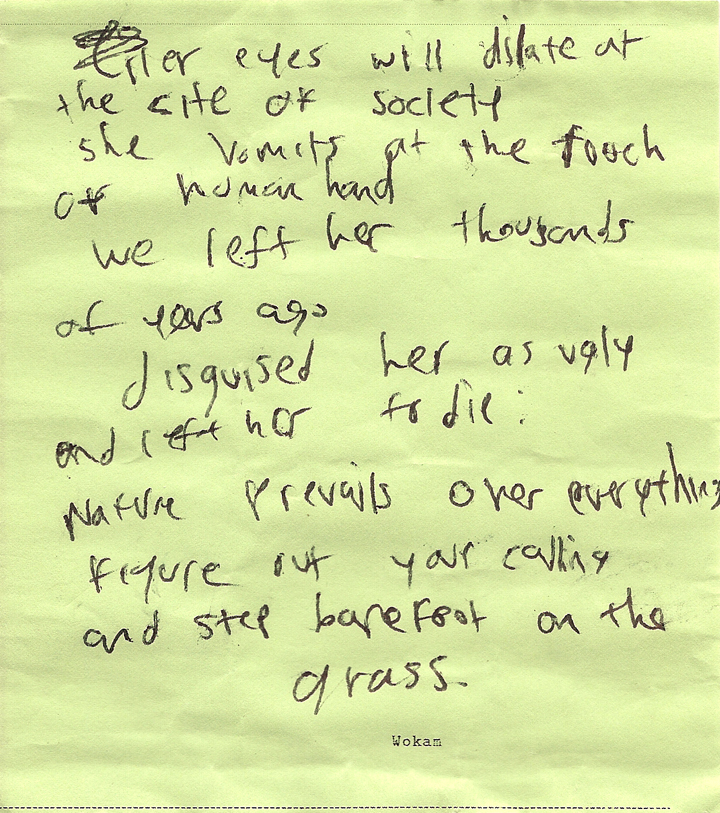 Her eyes will dilate at
the cite of society
she vomits at the touch
of human hand
we left her thousands
of years ago
disguised her as ugly
and left her to die:
Nature prevails over everything
figure out your calling
and step barefoot on the
grass.
Wokam